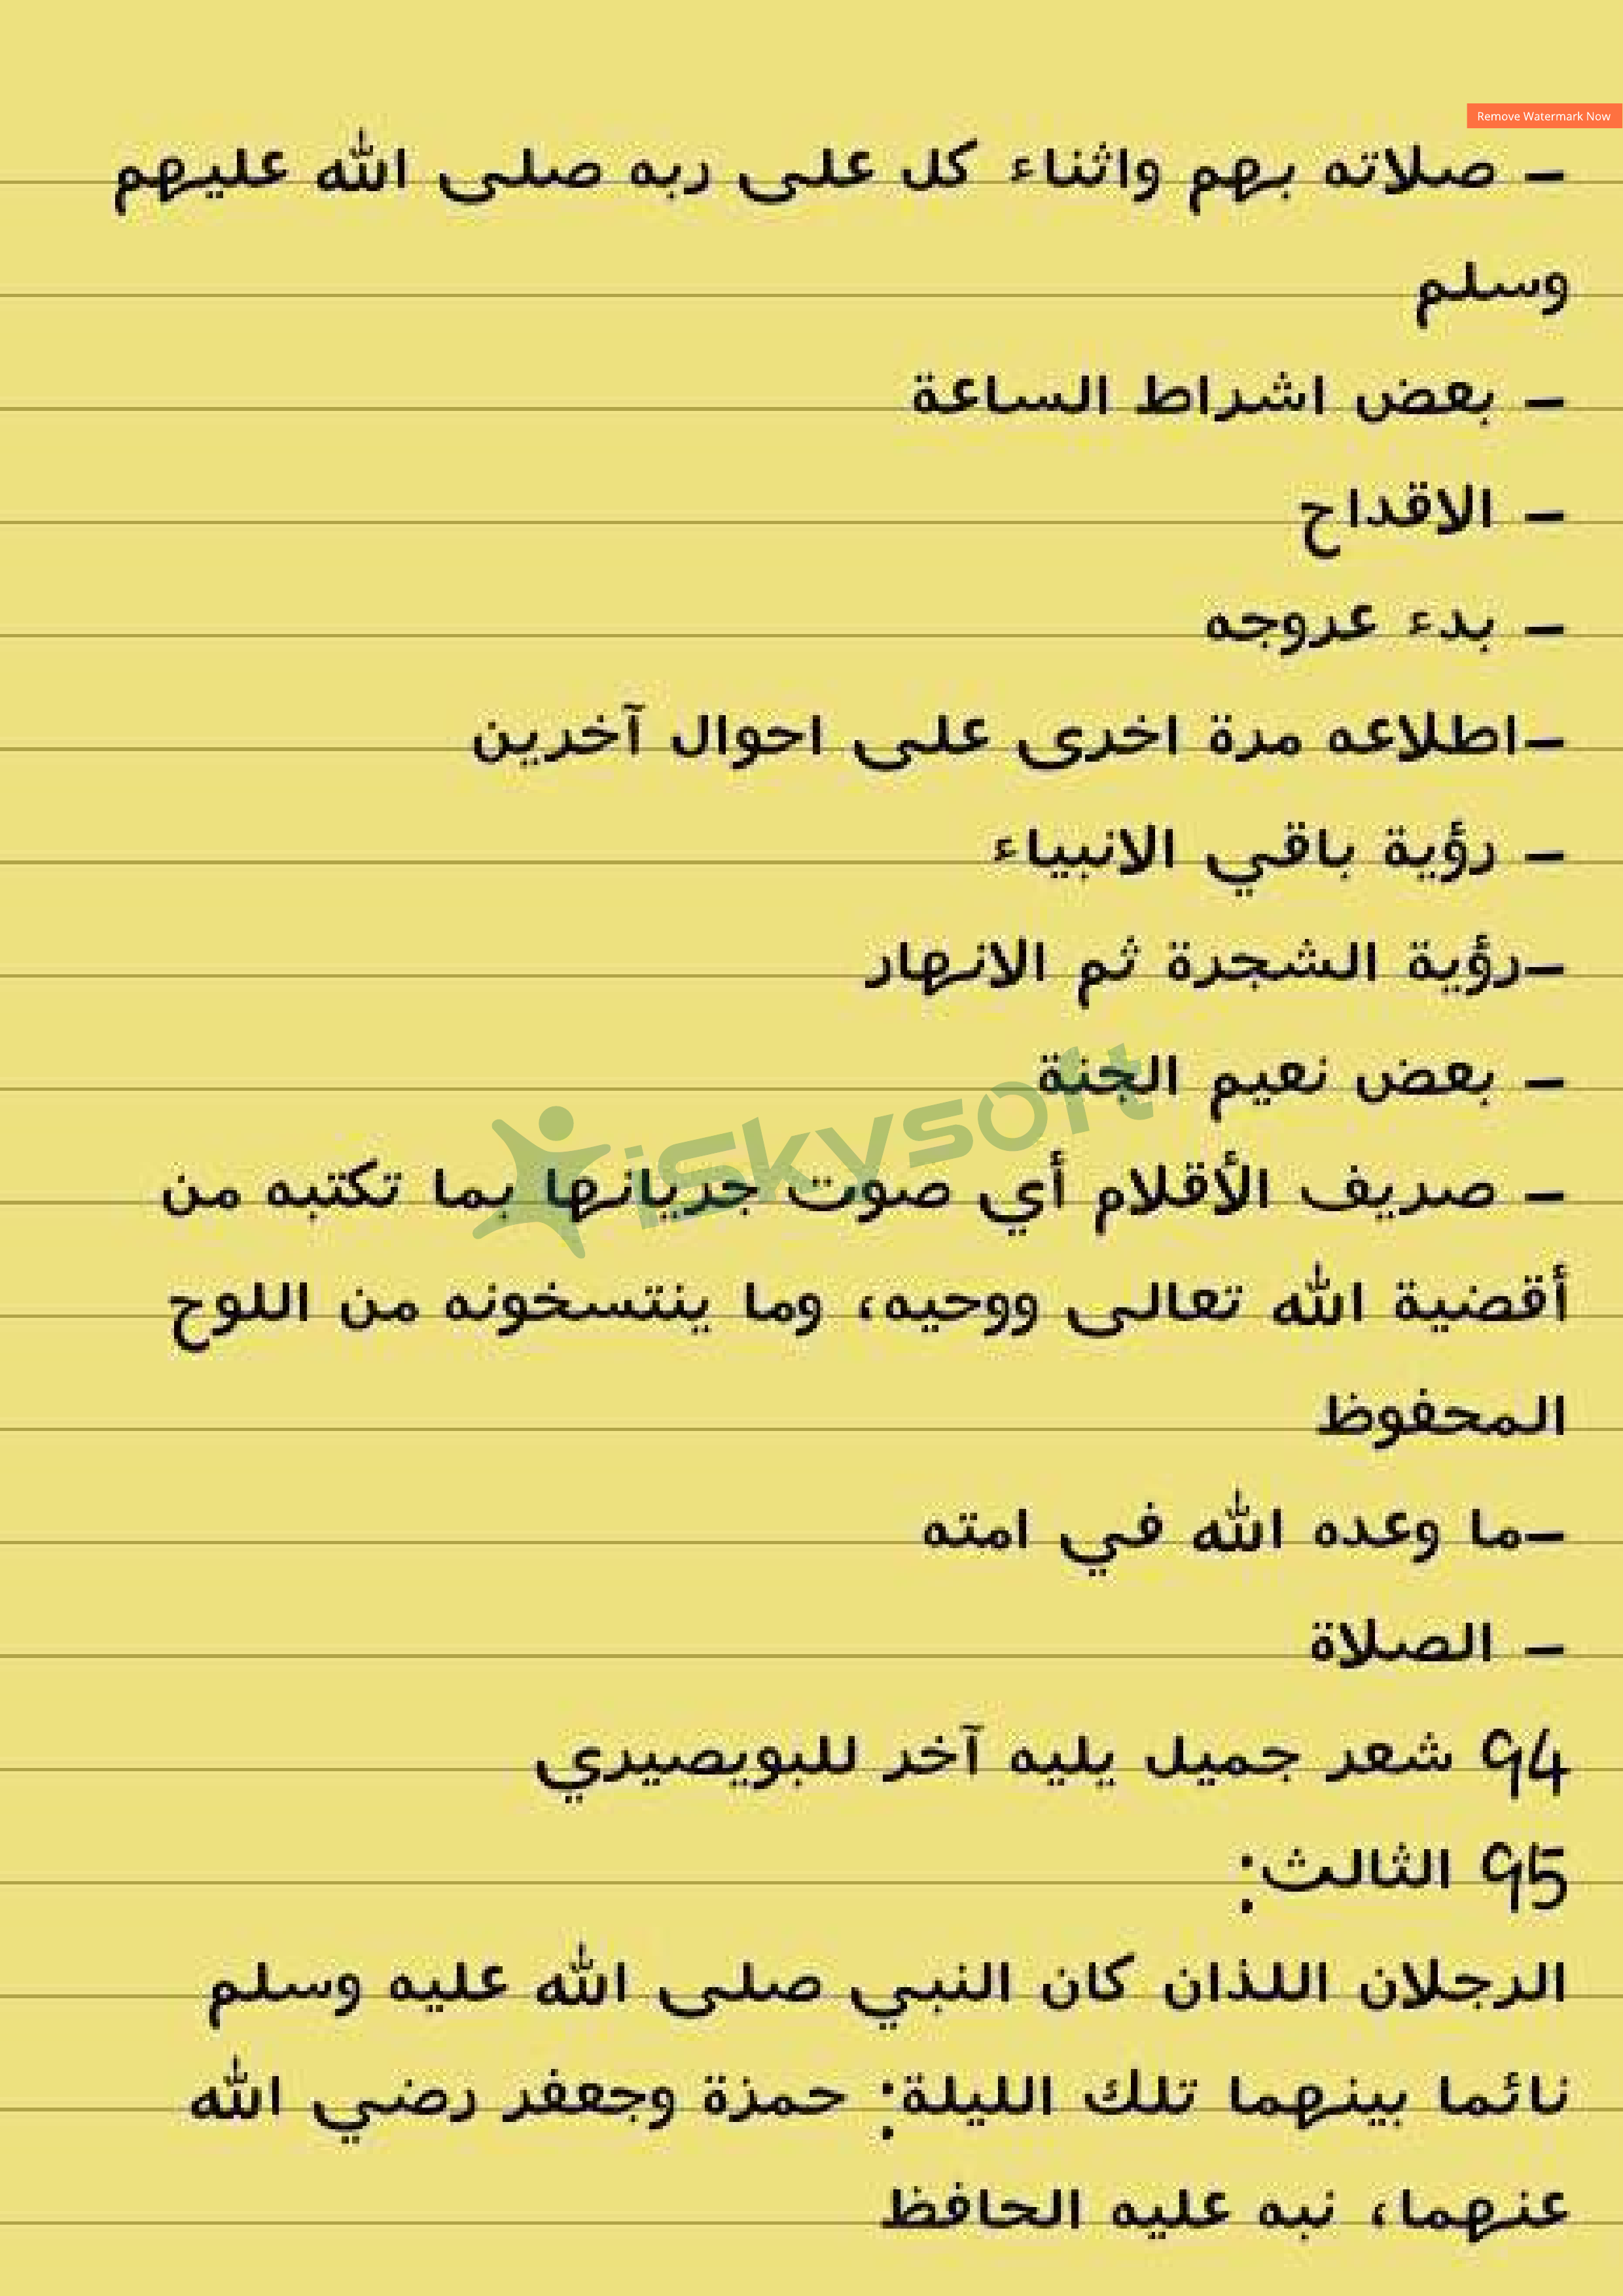 Remove Watermark Now
– صلاته بهم واثناء كل على ربه صلى الله عليهم
وسلم
– بعض اشراط الساعة
– الاقداح
– بدء عروجه
–اطلاعه مرة اخرى على احوال آخرين
– رؤية باقي الانبياء
–رؤية الشجرة ثم الانهار
– بعض نعيم الجنة
iskysoft
– صريف الأقلام أي صوت جريانها بما تكتبه من
أقضية الله تعالى ووحيه، وما ينتسخونه من اللوح
المحفوظ
–ما وعده الله في امته
– الصلاة
94 شعر جميل يليه آخر للبويصيري
95 الثالث:
الرجلان اللذان كان النبي صلى الله عليه وسلم
نائما بينهما تلك الليلة: حمزة وجعفر رضي الله
عنهما، نبه عليه الحافظ